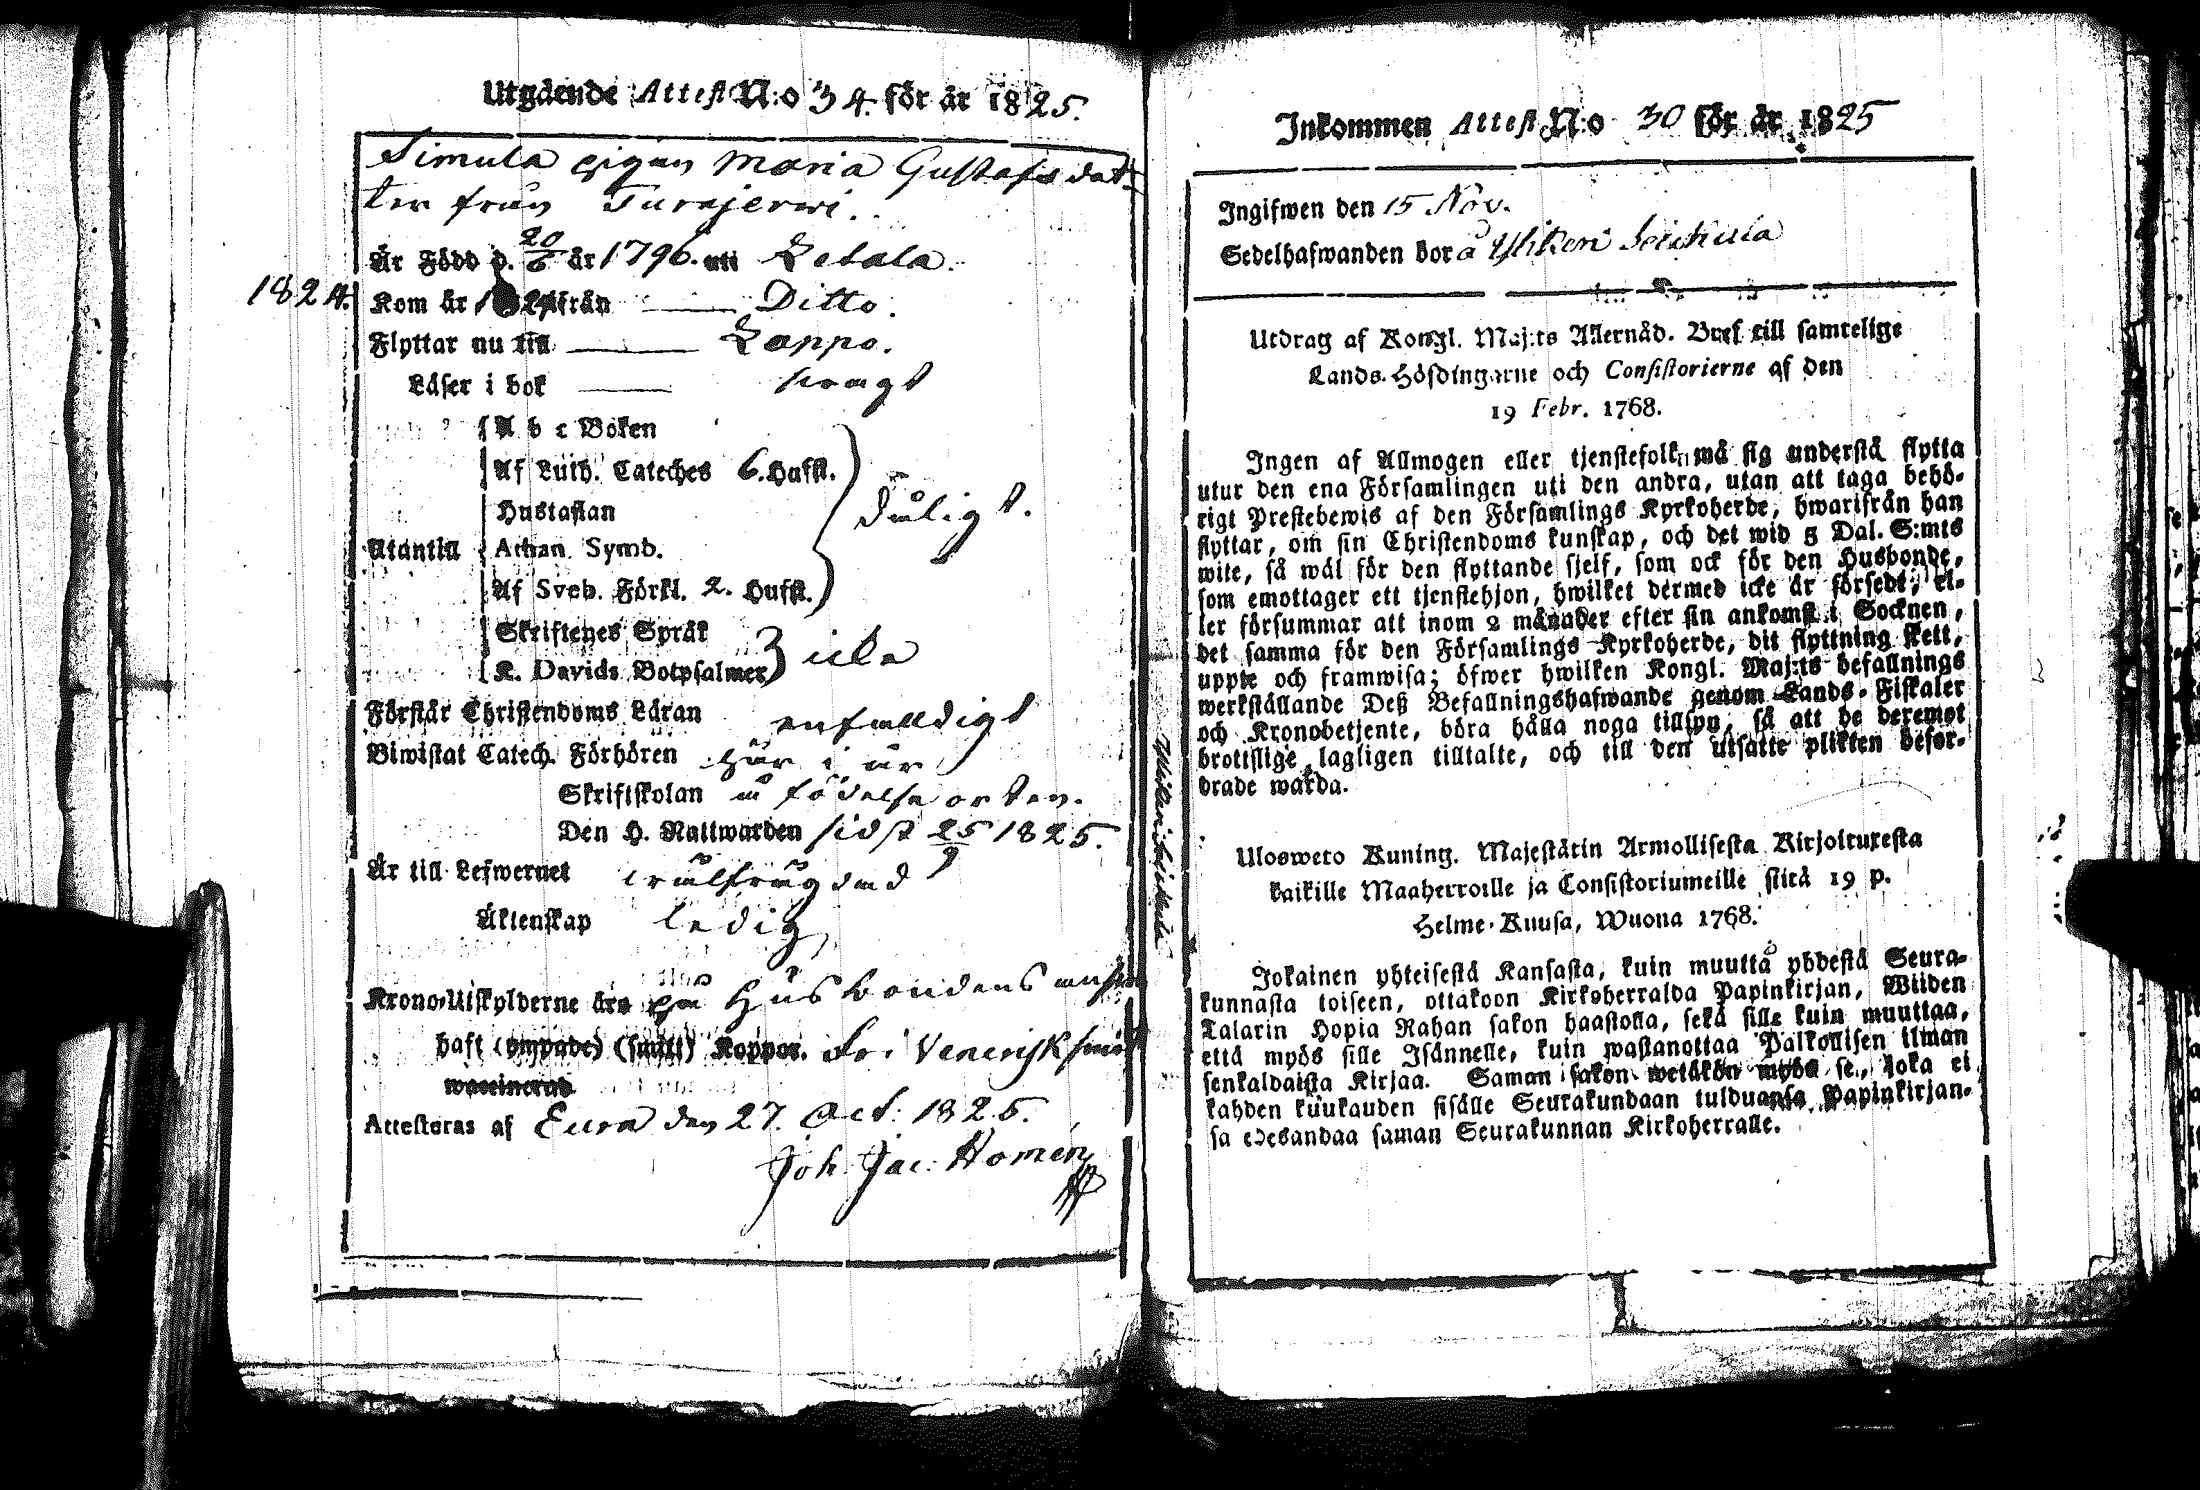 Utgående Attest N:o 34. för år 1825.
Simula pigan Maria Gustafsdot=
ter från Turajerwi.
Är Född d. 20/6 år 1796. uti Letala.
1824. Kom år 1824 ifrån Ditto.
Flyttar nu till Lappo.
Läser i bok svagt
A b c Boken
Af Luth. Cateches 6. Hufst.
Hustaflan
dåligt.
Utantill Athan. Symb.
Af Sveb. Förkl. 2. Hufst.
Skriftenes Språk
K. Davids Botpsalmer icke
Förstår Christendoms Läran enfaldigt
Biwistat Catech. Förhören här i år
Skriftskolan å födelseorten.
Den H. Nattwarden sidst 25/9 1825.
Är till Lefwernet
Äktenskap ledig
Krono-Utskylderne äro på Husbondens
haft (ympade) (smitt) Koppor. Fri Venerisk
waccinerad
Attesteras af Eura den 27. Oct. 1825.
Joh. Jac. Homén
Inkommen Attest N:o 30 för år 1825
Ingifwen den 15 Nov.
Sedelhafwanden bor å
Utdrag af Kongl. Maj:ts Allernåd. Bref till samtelige
Lands-Höfdingarne och Consistorierne af den
19 Febr. 1768.
Ingen af Allmogen eller tjenstefolk må sig understå flytta
utur den ena Församlingen uti den andra, utan att taga behö-
rigt Prestebewis af den Församlings Kyrkoherde, hwarifrån han
flyttar, om sin Christendoms kunskap, och det wid 5 Dal. S:mts
wite, så wäl för den flyttande sjelf, som ock för den Husbonde,
som emottager ett tjenstehjon, hwilket dermed icke är försedt; el-
ler försummar att inom 2 månader efter sin ankomst i Socknen,
det samma för den Församlings Kyrkoherde, dit flyttning skett,
uppte och framwisa; öfwer hwilken Kongl. Maj:ts befallnings
werkställande Deß Befallningshafwande genom Lands-Fiskaler
och Kronobetjente, böra hålla noga tillsyn, så att de deremot
brottslige lagligen tilltalte, och till den utsatte plikten befor-
drade warda.
Ulosweto Kuning. Majestätin Armollisesta Kirjoituxesta
kaikille Maaherroille ja Consistoriumeille siitä 19 p.
Helme-Kuusa, Wuona 1768.
Jokainen yhteisestä Kansasta, kuin muuttå yhdestä Seura-
kunnasta toiseen, ottakoon Kirkoherralda Papinkirjan, Wiiden
Talarin Hopia Rahan sakon haastolla, sekä sille kuin muuttaa,
että myös sille Isännelle, kuin wastanottaa Palkollisen ilman
senkaldaista Kirjaa. Saman sakon wetäkön myös se, joka ei
kahden kuukauden sisälle Seurakundaan tulduansa Papinkirjan-
sa edesandaa saman Seurakunnan Kirkoherralle.